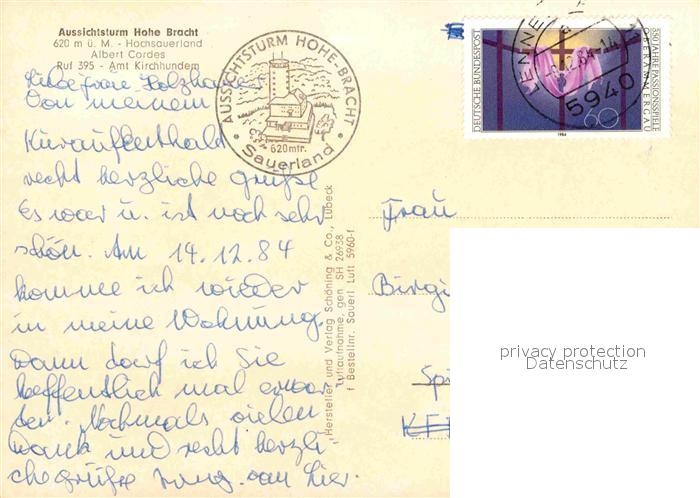 Aussichtsturm Hohe Bracht
620 m ü. M. - Hochsauerland
Albert Cordes
Ruf 395 - Amt Kirchhundem
Liebe Frau
Von meinem
Kuraufenthald
recht herzliche Grüße
Es war u. ist noch sehr
schön. Am 14.12.84
komme ich wieder
in meine Wohnung.
Dann darf ich Sie
hoffentlich mal erwar
ten. Nochmals vielen
Dank und recht herzli
che Grüße von hier.
AUSSICHTSTURM HOHE-BRACHT
620mtr.
Sauerland
"Hersteller und Verlag Schöning & Co., Lübeck
Luftaufnahme, gen SH 26938
f Bestellnr. Sauerl Luft 5960-f
DEUTSCHE BUNDESPOST
350 JAHRE PASSIONSSPIELE
OBERAMMERGAU
60
1984
LENNE
a
5940
Frau
Birgi
Sp
KFB
privacy protection
Datenschutz